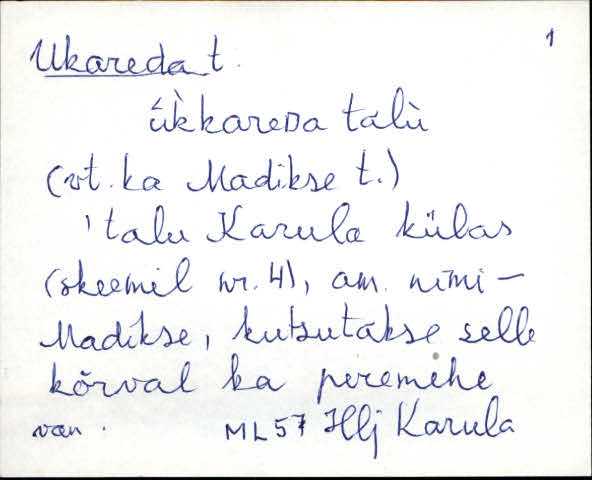 1
Ukareda t.
ùkkareDa talù
(vt. ka Madikse t.)
'talu Karula külas
(skeemil nr. 4), am. nimi –
Madikse, kutsutakse selle
kõrval ka peremehe
van. ML57 Hlj Karula